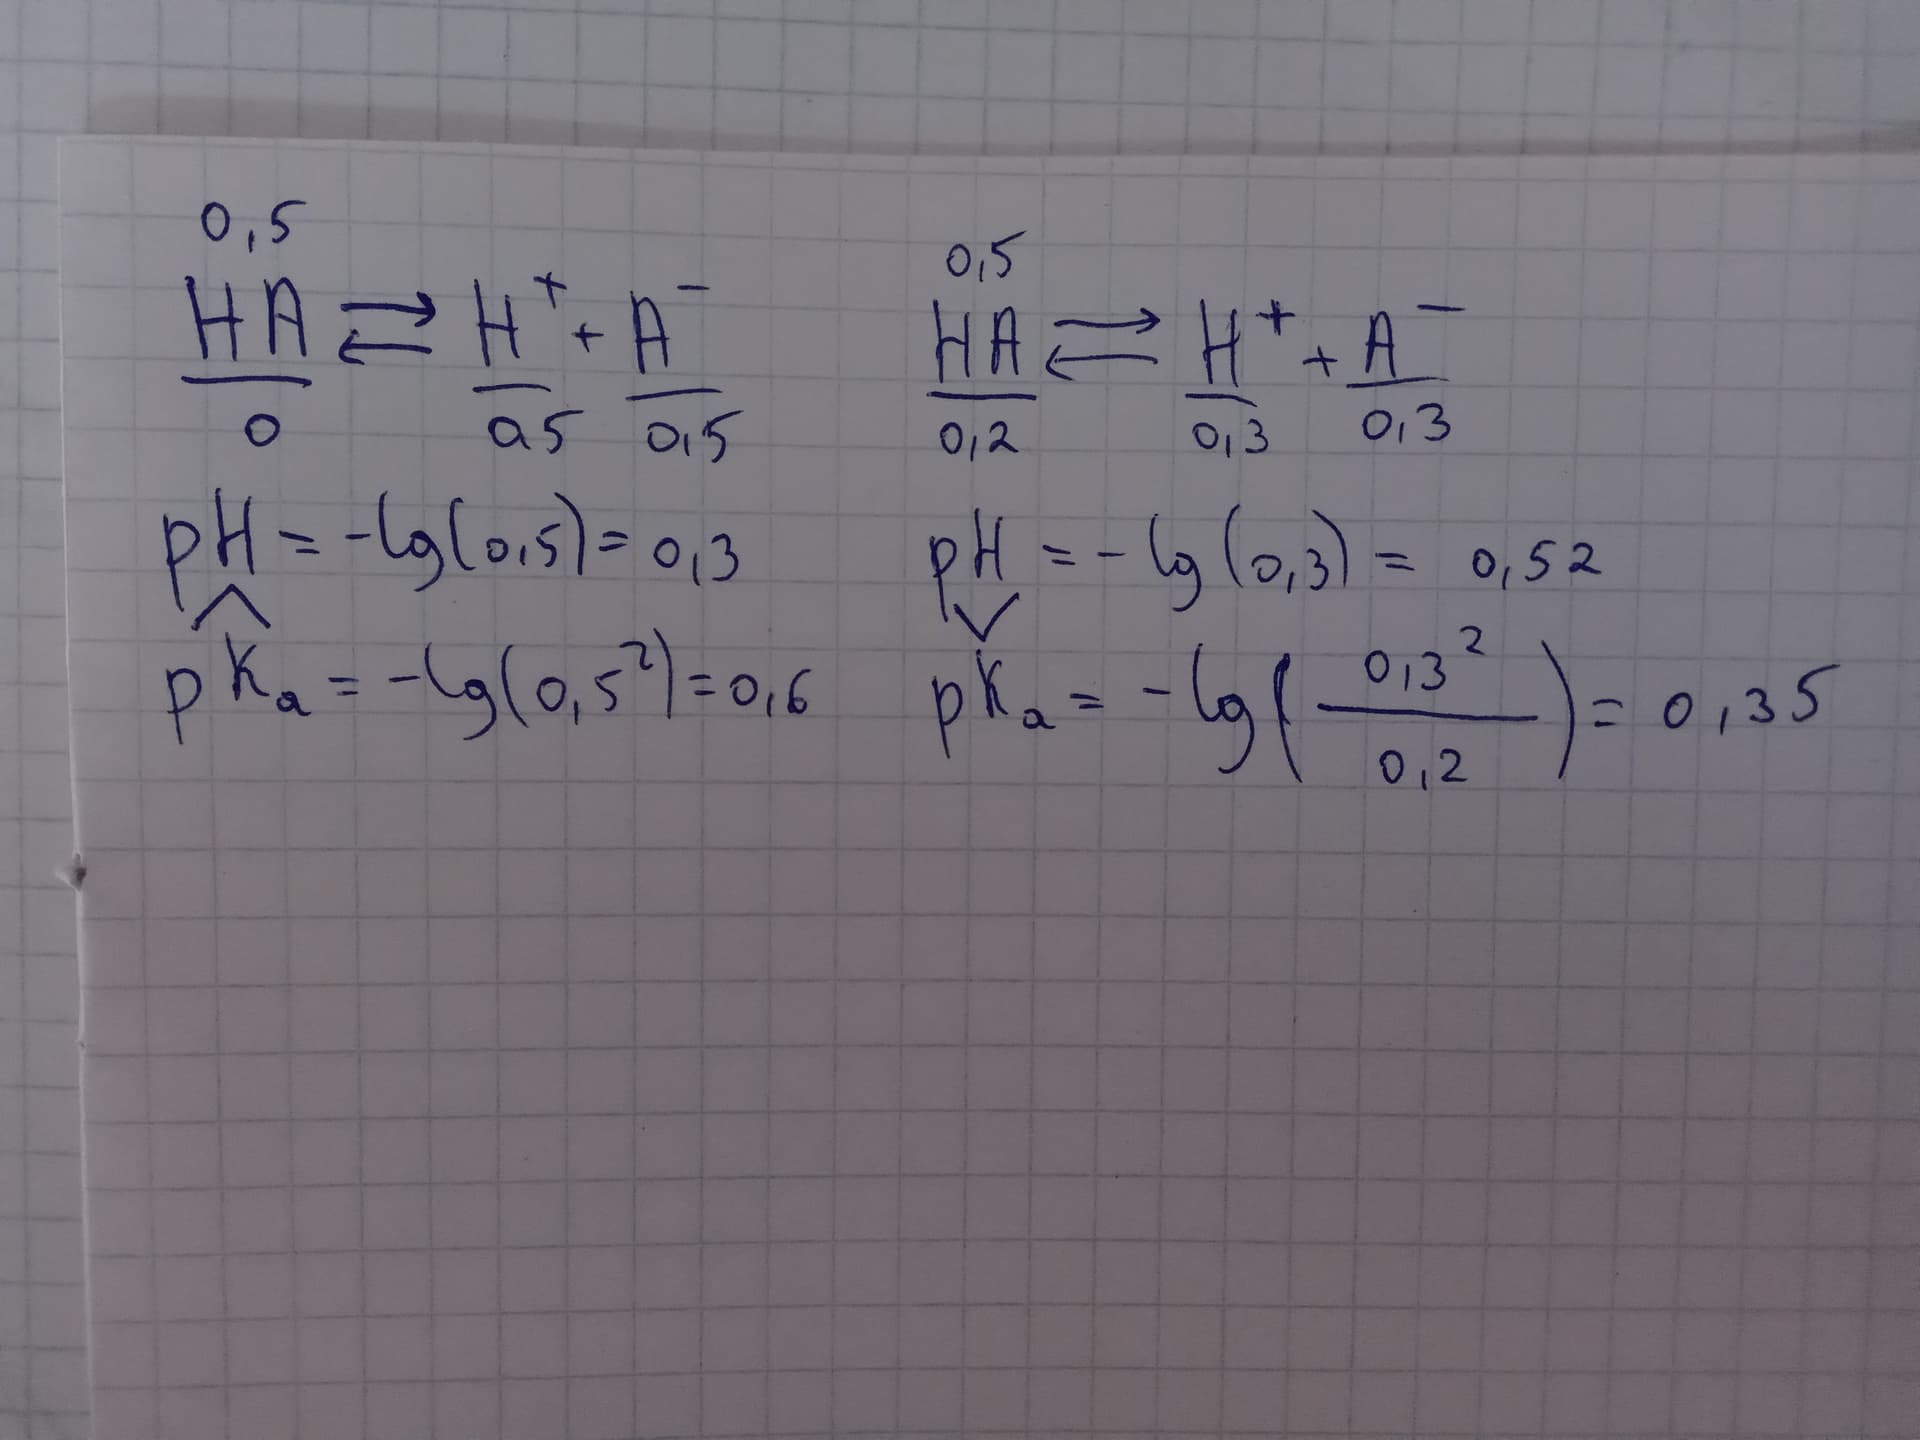 0,5
HA ⇄ H⁺ + A⁻
0 0,5 0,5
pH = -lg(0,5) = 0,3
^
pKₐ = -lg(0,5²) = 0,6
0,5
HA ⇄ H⁺ + A⁻
0,2 0,3 0,3
pH = -lg(0,3) = 0,52
v
pKₐ = -lg(0,3²/0,2) = 0,35